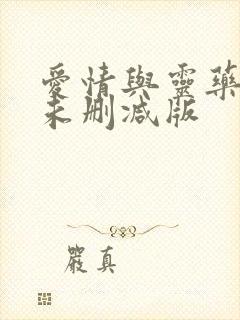 愛情與靈藥
未刪減版
嚴真